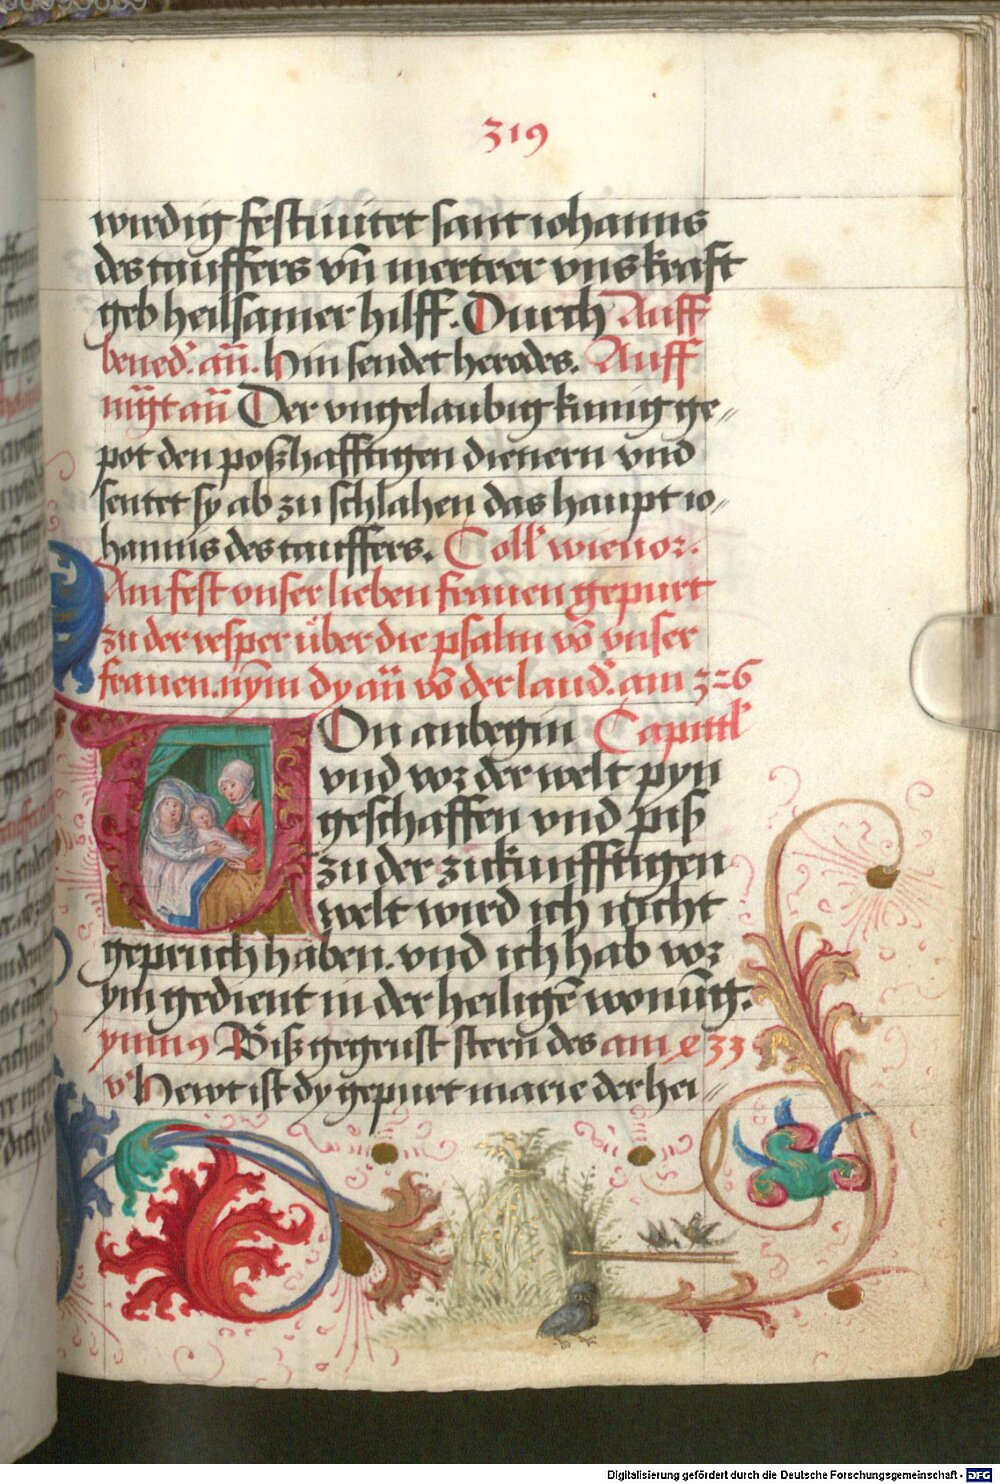 319
wirdig festiuitet sant iohanns
des tauffers vn̄ merterer vns kraft
geb heilsamer hilff. Durch Auff
bened. an̄. Hin sendet herodes. Auff
mḡt an̄ Der vngelaubig kunig ge〃
pot den poßhafftigen dienern vnd
sentet sy ab zu schlahen das haupt io〃
hanns des tauffers. Coll wie vor.
Am fest vnser lieben frauen gepurt
zu der vesper über die psalm vō vnser
frauen. nym dy an̄ vō der laud. am 326
Von anbegin Capittl
vnd vor der welt pyn
geschaffen vnd piß
zu der zukunfftigen
welt wird ich nicht
gepruch haben. vnd ich hab vor
ym gedient in der heiligē wonūg.
ymn9 Biß gegrust stern des am 33
v Hewt ist dy gepurt marie der hei〃
Digitalisierung gefördert durch die Deutsche Forschungsgemeinschaft - DFG